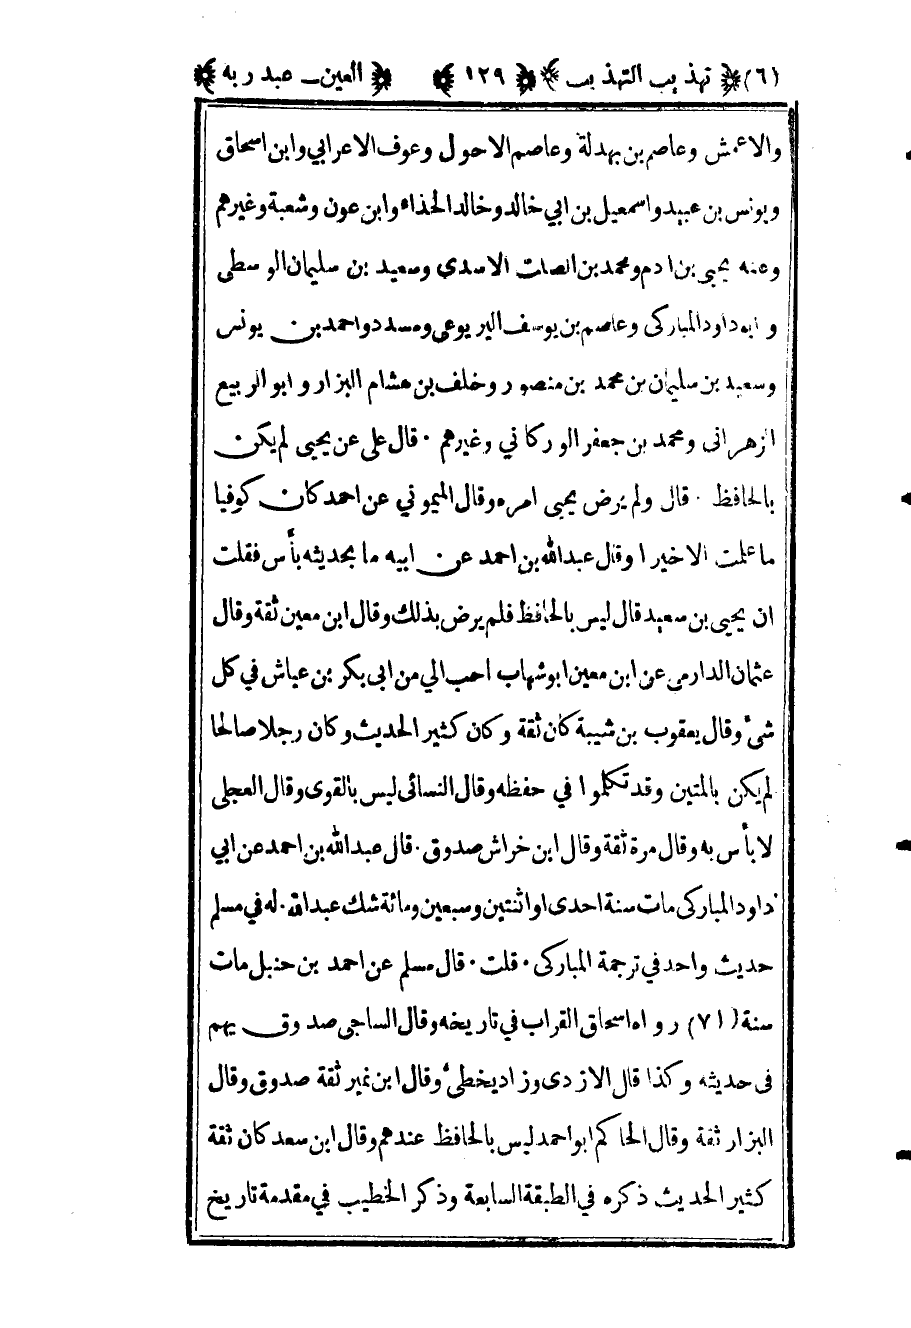 (٦) ﴿ تهذيب التهذيب ﴾ ﴿ ١٢٩ ﴾ ﴿ العين ـ عبد ربه ﴾
والاعمش وعاصم بن بهدلة وعاصم الاحول وعوف الاعرابي وابن اسحاق
ويونس بن عبيد واسمعيل بن ابي خالد وخالد الحذاء وابن عون وشعبة وغيرهم
وعنه يحيى بن ادم ومحمد بن الصلت الاسدي وسعيد بن سليمان الواسطي
وابو داود المباركى وعاصم بن يوسف اليربوعي ومسدد واحمد بن يونس
وسعيد بن سليمان بن محمد بن منصور وخلف بن هشام البزار وابو الربيع
الزهرانى ومحمد بن جعفر الوركاني وغيرهم · قال علي عن يحيى لم يكن
بالحافظ · قال ولم يرض يحيى امره وقال الميموني عن احمد كان كوفيا
ما علمت الاخيرا وقال عبدالله بن احمد عن ابيه ما بحديثه بأس فقلت
ان يحيى بن سعيد قال ليس بالحافظ فلم يرض بذلك وقال ابن معين ثقة وقال
عثمان الدارمى عن ابن معين ابو شهاب احب الي من ابى بكر بن عياش في كل
شئ وقال يعقوب بن شيبة كان ثقة وكان كثير الحديث وكان رجلا صالحا
لم يكن بالمتين وقد تكلموا في حفظه وقال النسائى ليس بالقوى وقال العجلى
لا بأس به وقال مرة ثقة وقال ابن خراش صدوق · قال عبدالله بن احمد عن ابي
داود المباركى مات سنة احدى او اثنتين وسبعين ومائة شك عبدالله · له في مسلم
حديث واحد في ترجمة المباركى · قلت · قال مسلم عن احمد بن حنبل مات
سنة (٧١) رواه اسحاق القراب في تاريخه وقال الساجى صدوق يهم
فى حديثه وكذا قال الازدى وزاد يخطئ وقال ابن نمير ثقة صدوق وقال
البزار ثقة وقال الحاكم ابو احمد ليس بالحافظ عندهم وقال ابن سعد كان ثقة
كثير الحديث ذكره في الطبقة السابعة وذكر الخطيب في مقدمة تاريخ